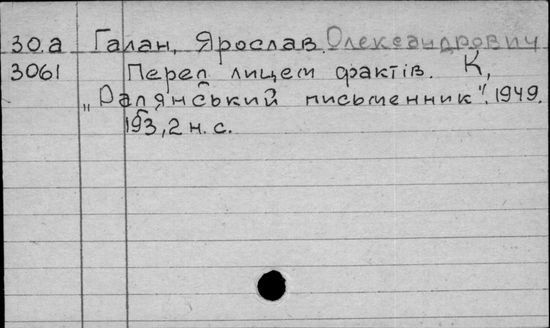 30.а Галан, Ярослав Олександрович
3061 Перед лицем фактів. К,
„Радянський письменник". 1949.
193, 2 н. с.